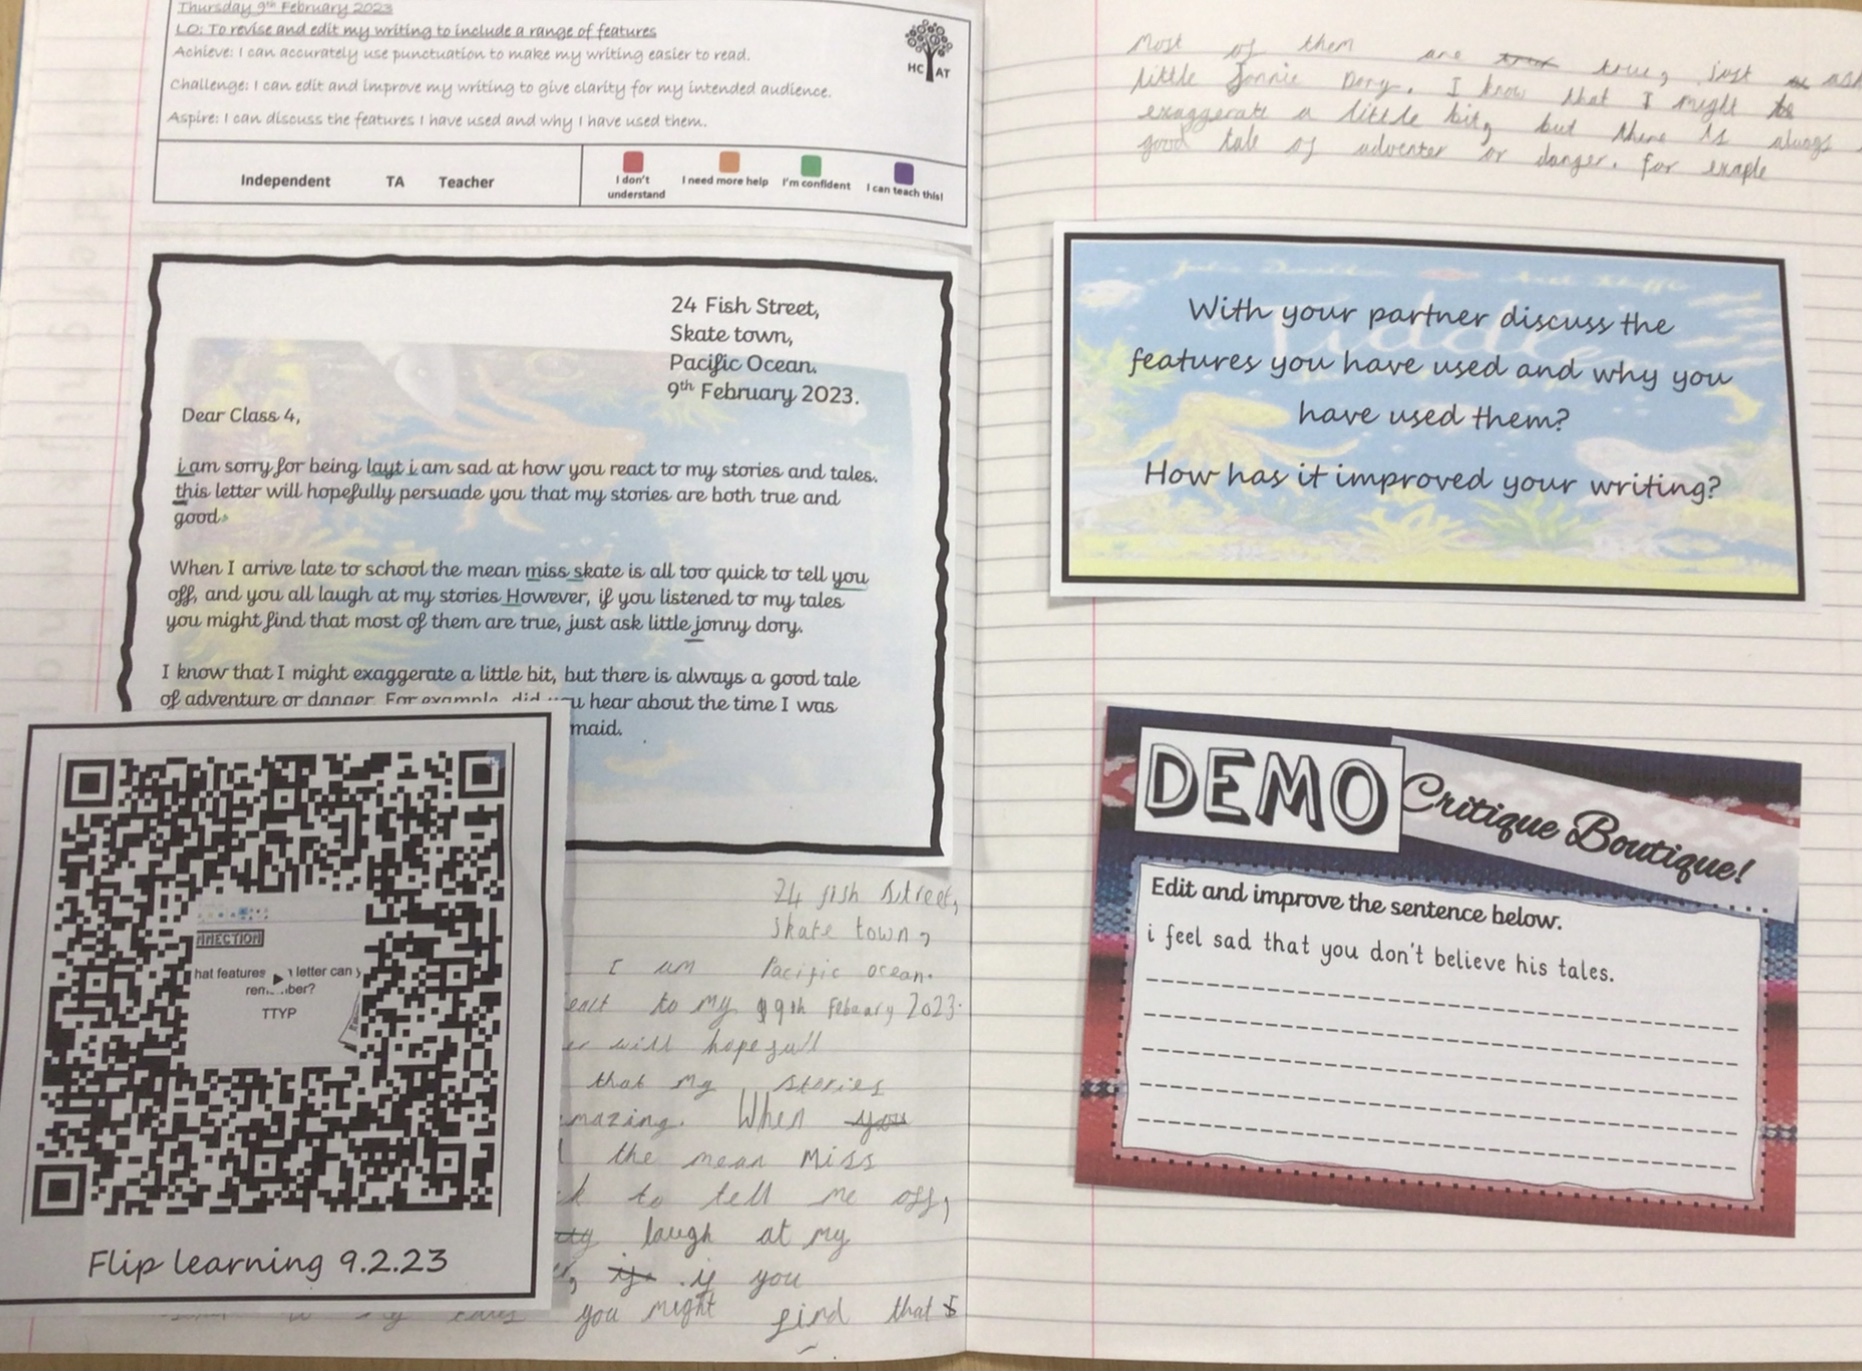 Thursday 9th February 2023
LO: To revise and edit my writing to include a range of features
Achieve: I can accurately use punctuation to make my writing easier to read.
Challenge: I can edit and improve my writing to give clarity for my intended audience.
Aspire: I can discuss the features I have used and why I have used them.
HC AT
Independent TA Teacher
I don't understand
I need more help
I'm confident
I can teach this!
24 Fish Street,
Skate town,
Pacific Ocean.
9th February 2023.
Dear Class 4,
i am sorry for being layt i am sad at how you react to my stories and tales.
this letter will hopefully persuade you that my stories are both true and
good.
When I arrive late to school the mean miss skate is all too quick to tell you
off, and you all laugh at my stories However, if you listened to my tales
you might find that most of them are true, just ask little jonny dory.
I know that I might exaggerate a little bit, but there is always a good tale
of adventure or danger. For example, did you hear about the time I was
maid.
NNECTION
hat features letter can y
TTYP
Flip learning 9.2.23
24 fish street,
skate town,
I am Pacific ocean.
to my 9th Febuary 2023.
will hopefull
that my stories
mazing. When you
the mean Miss
to tell me off,
laugh at my
if you
you might find that
Most of them are true, just ask
little Jonnie Dory. I know that I might
exaggerate a little bit, but there is always
good tale of adventer or danger. for exaple
With your partner discuss the
features you have used and why you
have used them?
How has it improved your writing?
DEMO
Critique Boutique!
Edit and improve the sentence below.
i feel sad that you don't believe his tales.